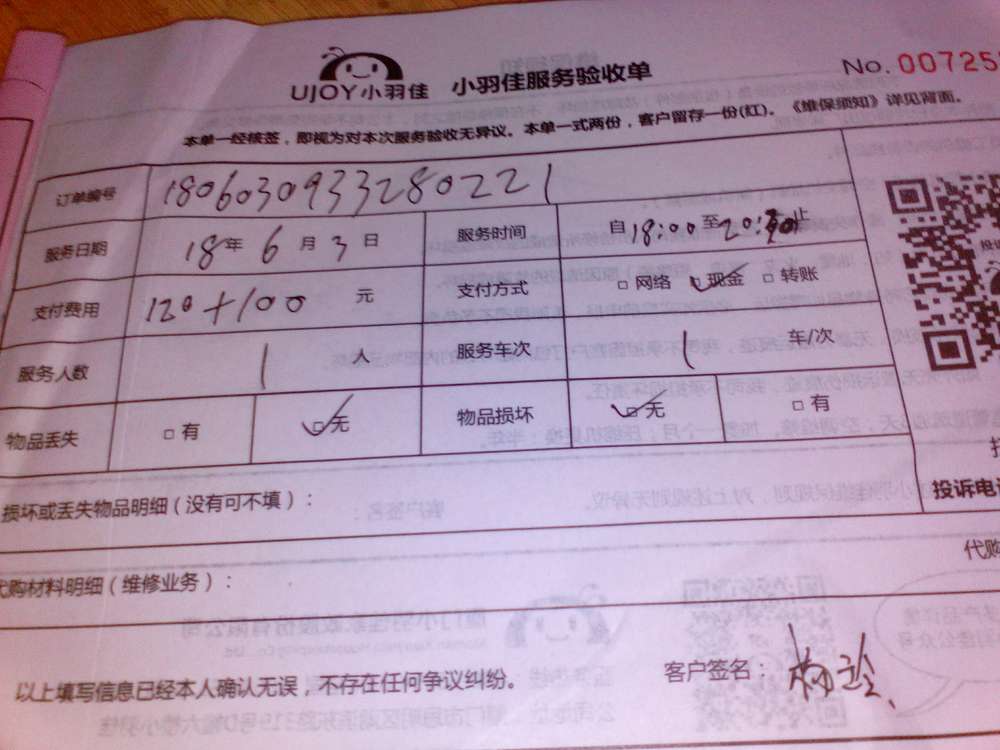 UJOY小羽佳 小羽佳服务验收单 No. 00725
本单一经核签，即视为对本次服务验收无异议。本单一式两份，客户留存一份(红)。《维保须知》详见背面。
订单编号 180603093328022 1
服务日期 18年 6 月 3 日 服务时间 自18:00至20:止
支付费用 120+100 元 支付方式 □网络 □现金 □转账
服务人数 1 人 服务车次 1 车/次
物品丢失 □有 □无 物品损坏 □无 □有
损坏或丢失物品明细（没有可不填）：
投诉电
代购
代购材料明细（维修业务）：
以上填写信息已经本人确认无误，不存在任何争议纠纷。 客户签名：杨